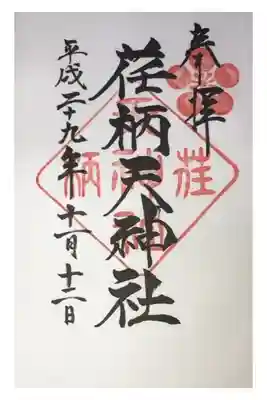 奉拝
荏柄天神社
平成二十九年十一月十二日